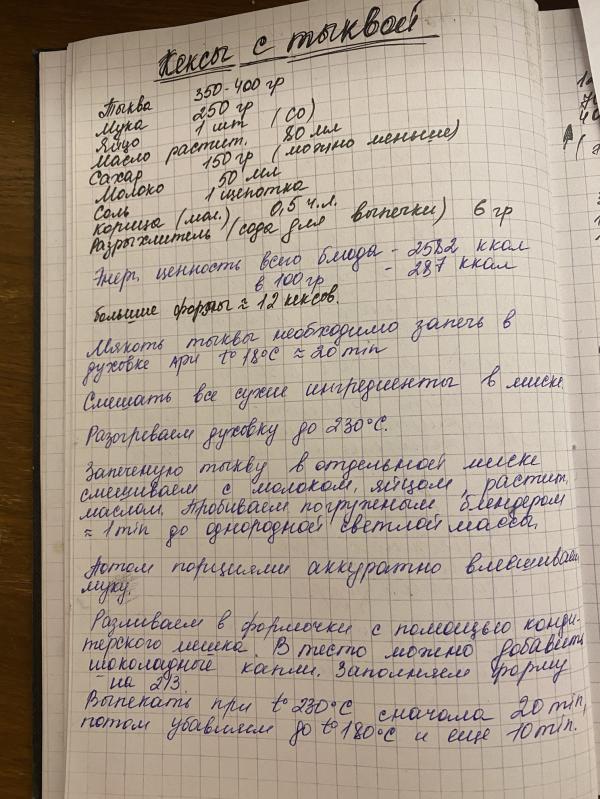 Кексы с тыквой
Тыква 350-400 гр
Мука 250 гр
Яйцо 1 шт (СО)
Масло растит. 80 мл
Сахар 150 гр (можно меньше)
Молоко 50 мл
Соль 1 щепотка
Корица (мол.) 0,5 ч.л.
Разрыхлитель (сода для выпечки) 6 гр
Энерг. ценность всего блюда - 2582 ккал
в 100 гр - 287 ккал
большие формы ≈ 12 кексов.
Мякоть тыквы необходимо запечь в
духовке при t° 18°C ≈ 20 min
Смешать все сухие ингредиенты в миске.
Разогреваем духовку до 230°C.
Запеченую тыкву в отдельной миске
смешиваем с молоком, яйцом, растит.
маслом. Пробиваем погруженым блендером
≈ 1 min до однородной светлой массы.
Потом порциями аккуратно вмешиваем
муку.
Разливаем в формочки с помощью конди-
терского мешка. В тесто можно добавить
шоколадные капли. Заполняем форму
на 2/3.
Выпекать при t° 230°C сначала 20 min,
потом убавляем до t° 180°C и еще 10 min.